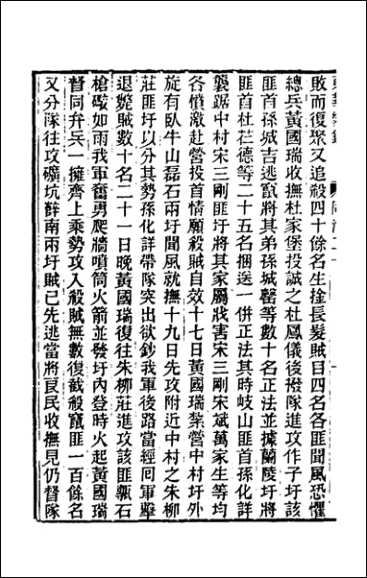 敗而復聚又追殺四十餘名生擒長髮賊目四名各匪聞風恐懼
總兵黃國瑞收撫杜家堡投誠之杜鳳儀後撥隊進攻作子圩該
匪首孫城吉逃竄將其弟孫城罄等數十名正法並據蘭陵圩將
匪首杜茬德等二十五名捆送一併正法其時岐山匪首孫化詳
襲踞中村宋三剛匪圩將其家屬戕害宋三剛宋斌萬家生等均
各憤激赴營投首情願殺賊自效十七日黃國瑞紮營中村圩外
旋有臥牛山磊石兩圩聞風就撫十九日先攻附近中村之朱柳
莊匪圩以分其勢孫化詳帶隊突出欲鈔我軍後路當經囘軍擊
退斃賊數十名二十一日晚黃國瑞復往朱柳莊進攻該匪甎石
槍礮如雨我軍奮勇爬牆噴筒火箭並發圩內登時火起黃國瑞
督同弁兵一擁齊上乘勢攻入殺賊無數復截殺竄匪一百餘名
又分隊往攻礦坑辥南兩圩賊已先逃當將良民收撫見仍督隊